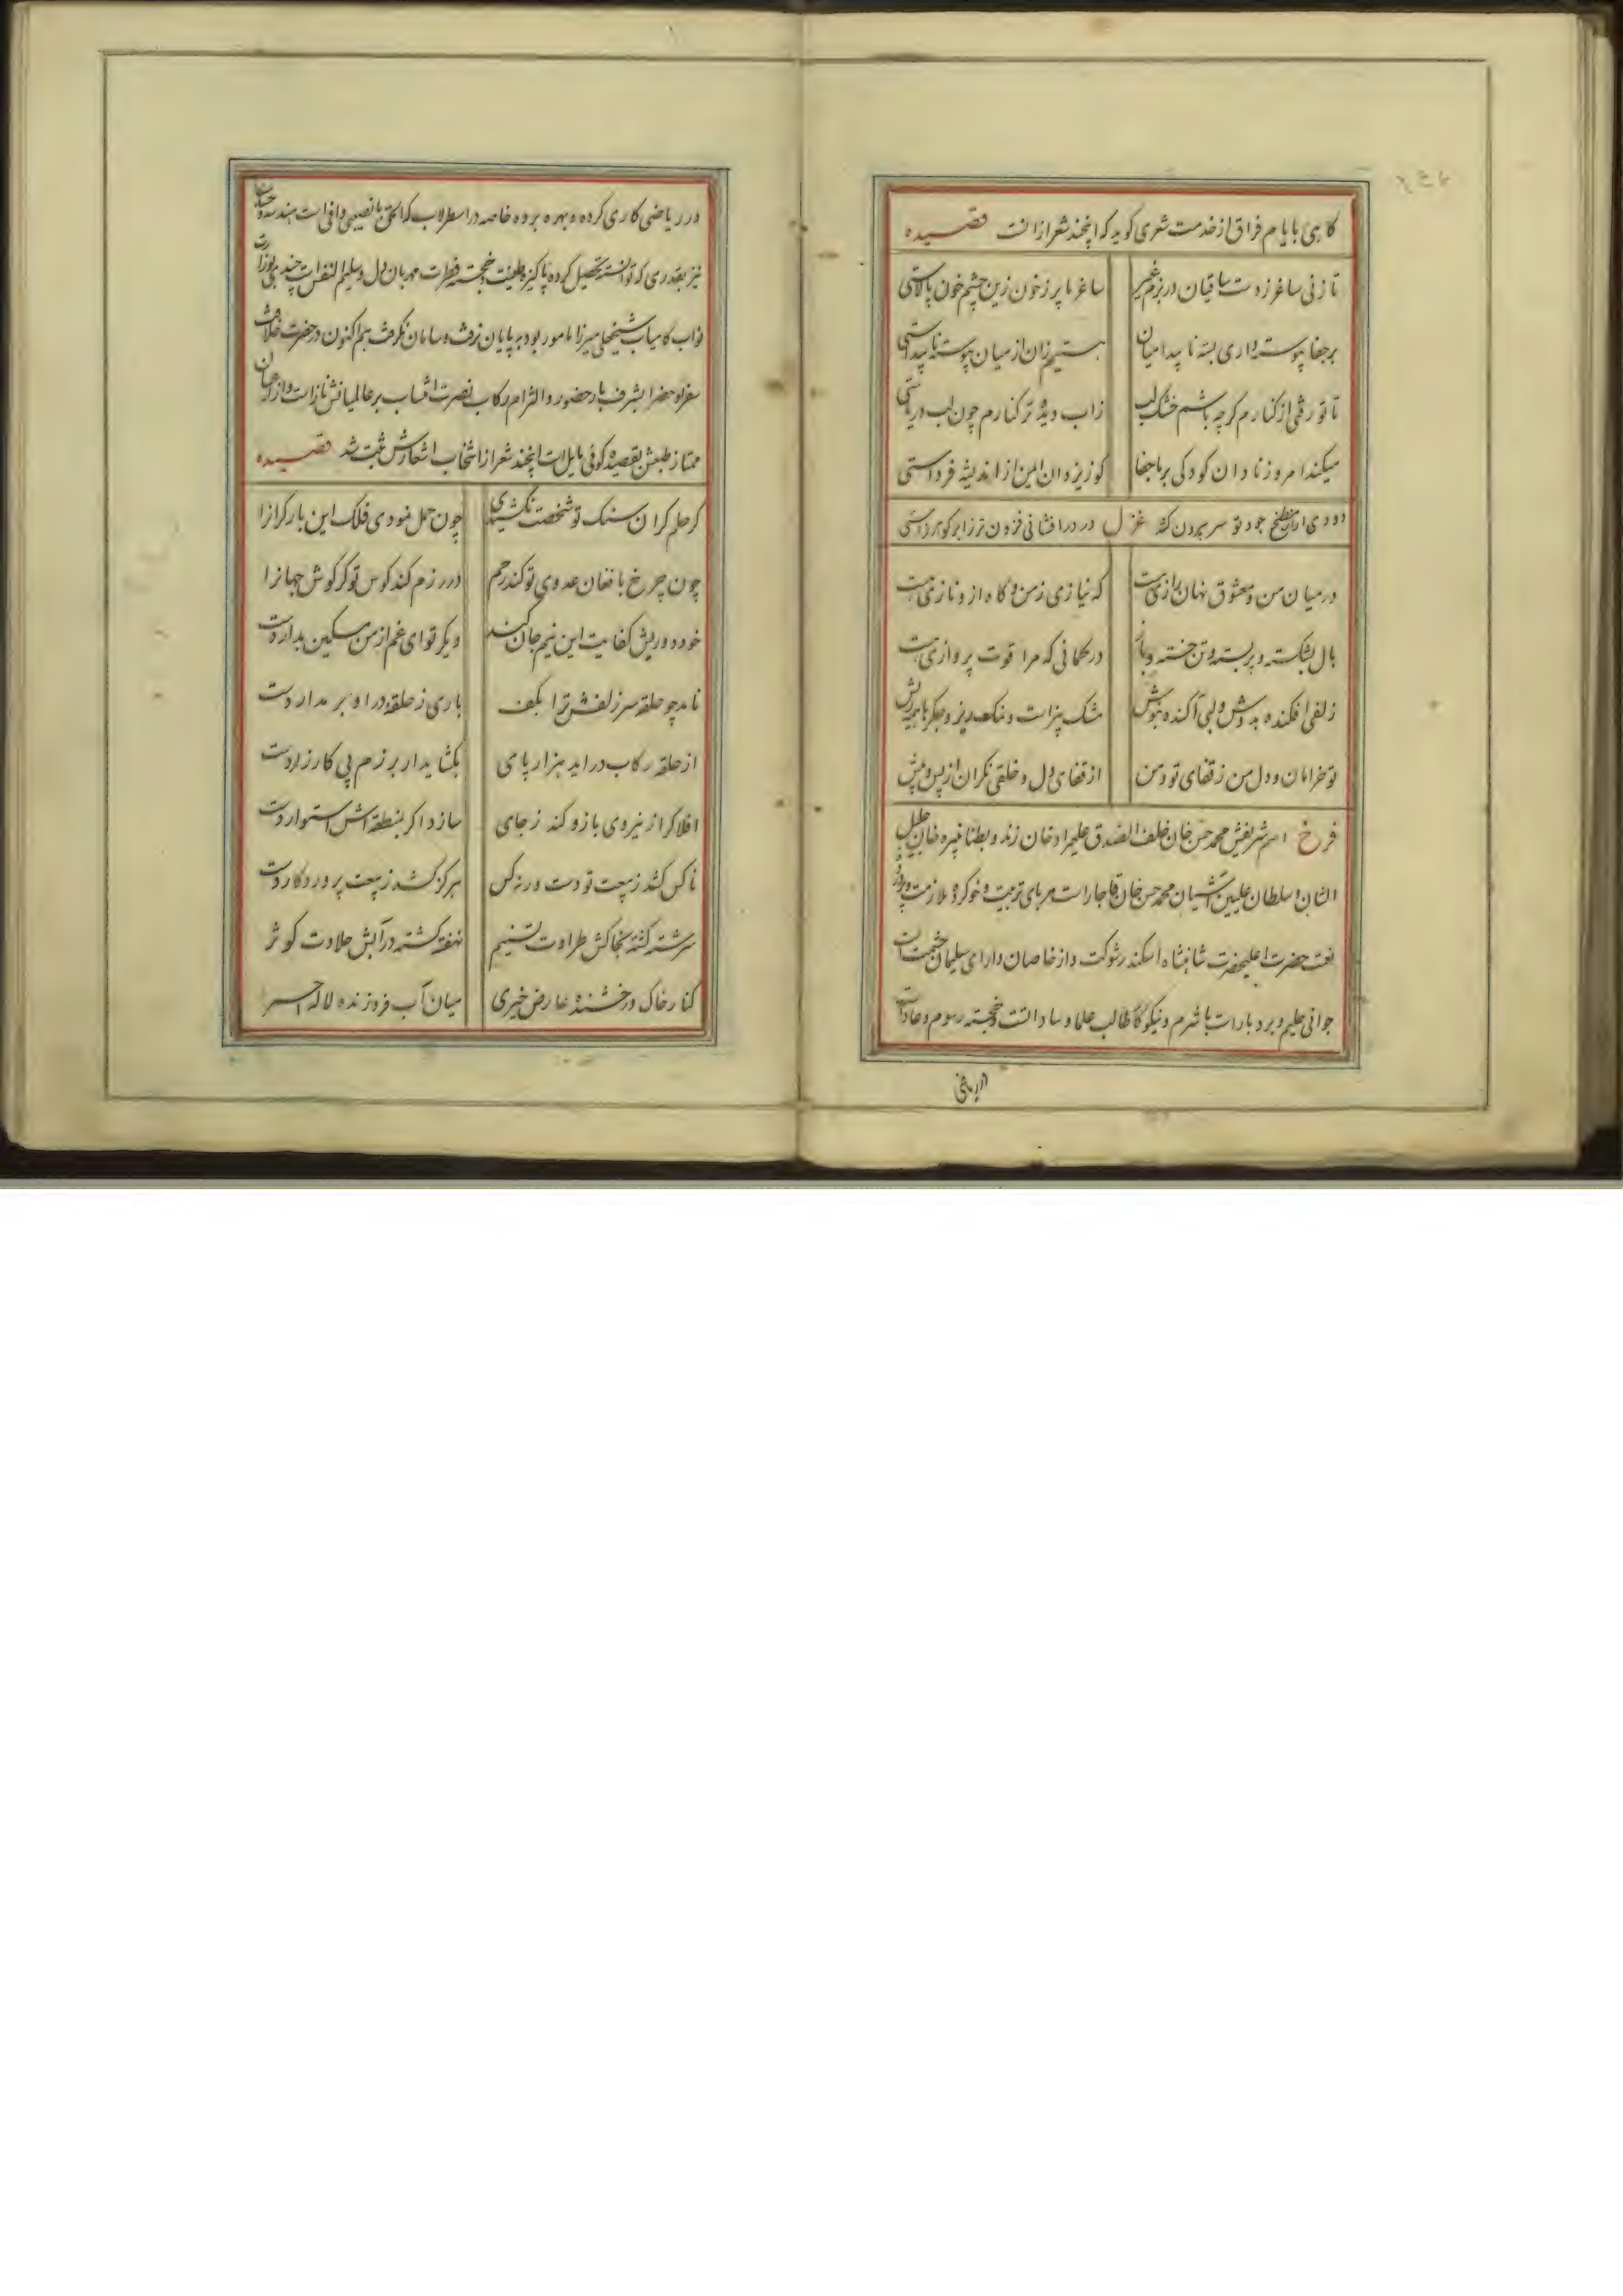 کاهی بایام فراق از خدمت شعری کوید که اینچند شعر از انست قصیده
تا زنی ساغر ز دست ساقیان در بزم غیر ساغر ما پر ز خون زین چشم خون پالاستی
بر جفا پیوسته داری بسته نا پیدا میان نیستیم زان از میان پیوسته نا پیداستی
تا تو رفتی از کنارم کرچه باشم خشک لب زاب دیده تر کنارم چون لب دریاستی
میکند امروز نادان کودکی بر ما جفا کوز یزدان ایمن از اندیشه فرداستی
دودی از مطبخ جود تو سر بیرون کشد غزل در در افشانی فزون تر ز ابر کوهرزاستی
در میان من و معشوق نهان رازی هست که نیازی ز من و کاه ازو نازی هست
بال بشکسته و پر بسته و تن خسته و باز در کمانی که مرا قوت پروازی هست
زلفی افکنده بدوش و لبی آکنده بنوش مشک بیز است و نمک ریز و جکرها همه ریش
تو خرامان و دل من ز قفای تو و من از قفای دل و خلقی نکران از پس و پیش
فرخ اسم شریفش محمد حسن خان خلف الصدق علیمراد خان زند و بطنا نبیره خان جلیل
الشان و سلطان علیین آشیان محمد حسن خان قاجار است تربیت و خو کرده ملازمت
حضرت اعلیحضرت شاهنشاه اسکندر شوکت و از خاصان دارای سلیمان حشمت است
جوانی حلیم و بردبار است با شرم و نیکو طالب علما و سادات و خجسته رسوم و عادات
در ریاضی
در ریاضی کاری کرده و بهره برده خاصه در اسطرلاب که الحق با نصیبی وافر است هندسه و حساب
نیز بقدری که توانسته تحصیل کرده پاکیزه طینت و خجسته فطرت مهربان دل و سلیم النفس است چندی بوزارت
نواب کامیاب شیخعلی میرزا مامور بود به پایان نرفت و سامان نکرفت هم اکنون در حضرت خلافت
سفرا و حضرا بشرف بار حضور و التزام رکاب نصرت انتساب بر عالمیانش ناز است و از
ممتاز طبعش بقصیده کوئی مایل است اینچند شعر از انتخاب اشعارش ثبت شد قصیده
کر حلم کران سنک تو شخصت نکشیدی چون حمل نمودی فلک این بار کرانرا
چون چرخ بافغان عدوی تو کند رحم در رزم کند کوس تو کر کوش جهانرا
خود دوریش کفایت این نیم جان کند دیکر تو ای غم از من مسکین بدار دست
ناید چو حلقه سر زلفش ترا بکف باری ز حلقه در او بر مدار دست
از حلقه رکاب دراید هزار پای بکشاید ار برزم پی کارزار دست
افلاک را ز نیروی بازو کند ز جای سازد اکر بمنطقه اش استوار دست
ناکس کشد ز بیعت تو دست ورنه کس هرکز کشد ز بیعت پروردکار دست
سرشته کشته بخاکش طراوت تسنیم نهفته کشته در آبش حلاوت کوثر
کنار خاک درخشنده عارض خیری میان آب فروزنده لاله احمر